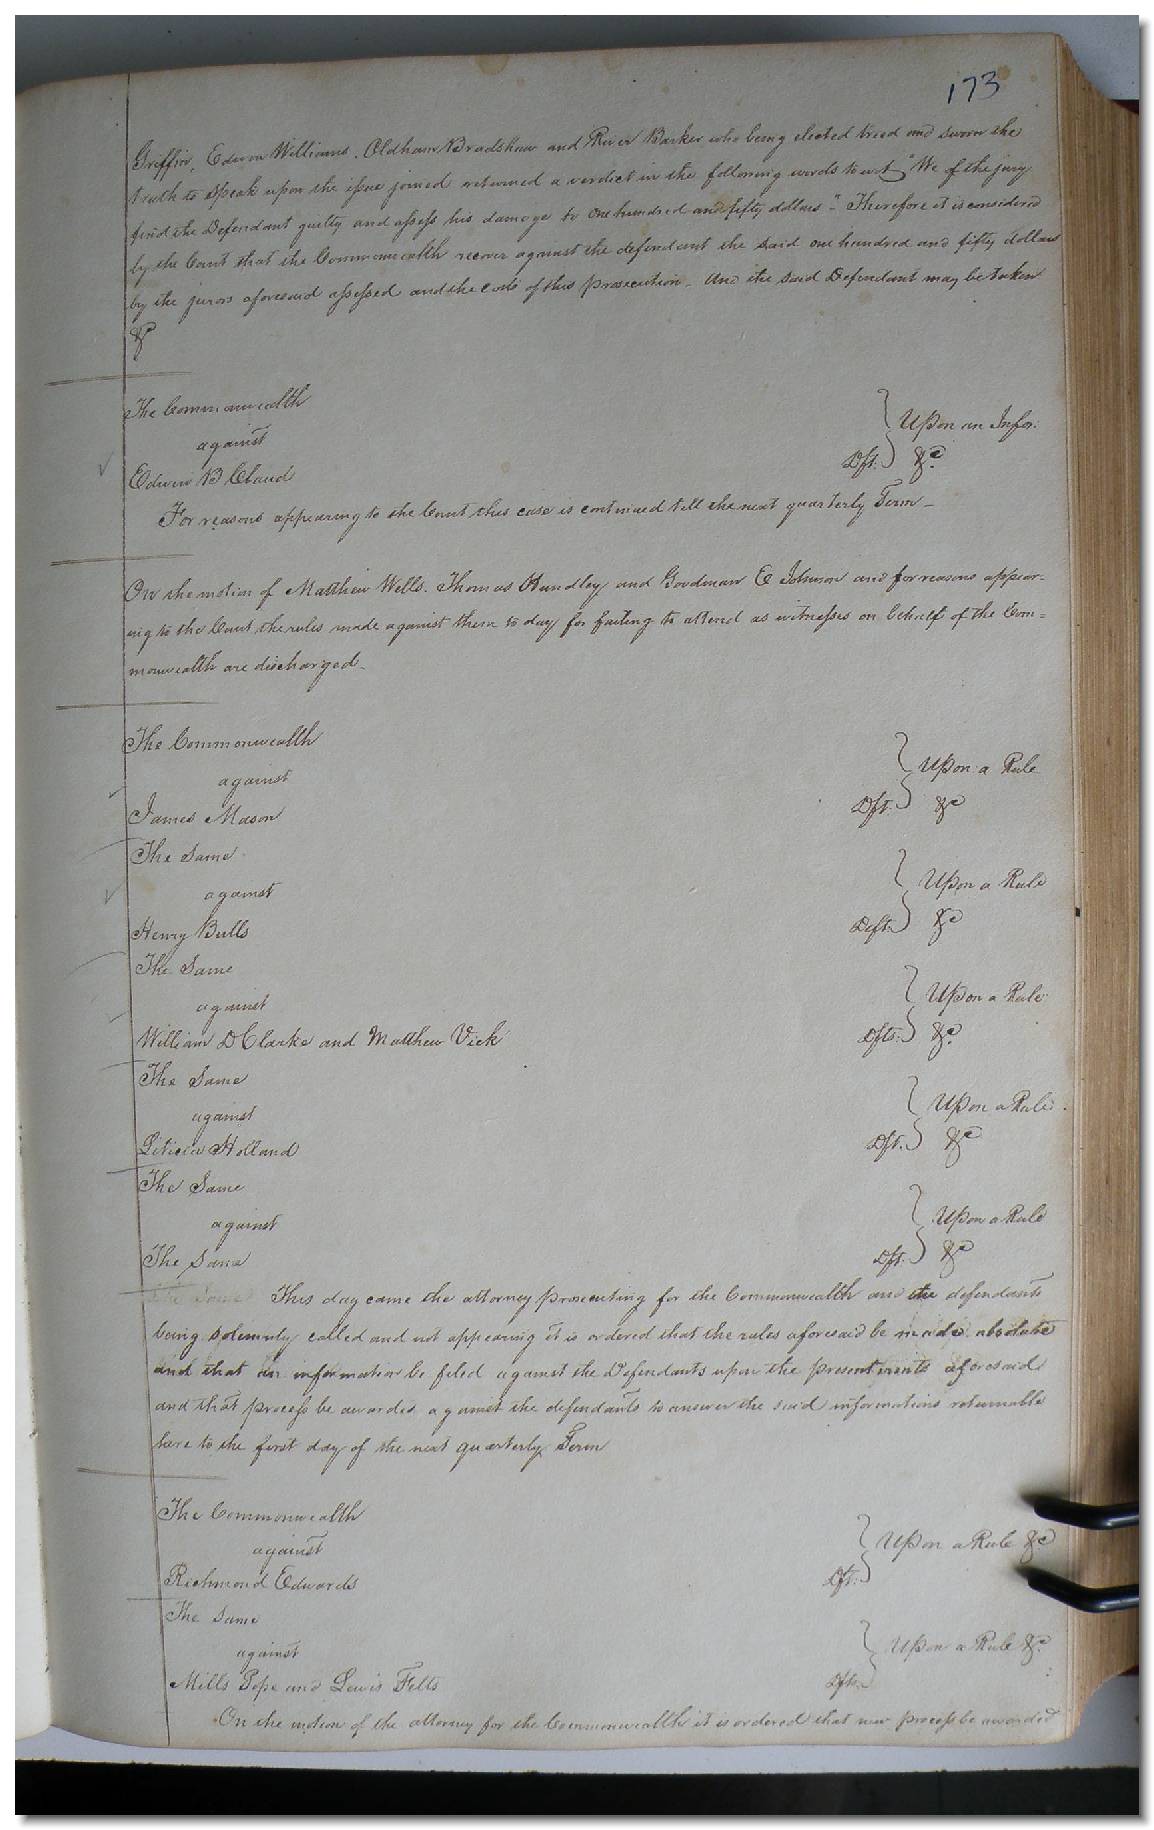 173
Griffin, Edwin Williams, Oldham Bradshaw and River Barker who being elected tried and sworn the
truth to speak upon the issue joined returned a verdict in the following words to wit "We of the jury
find the Defendant guilty and assess his damage to one hundred and fifty dollars". Therefore it is considered
by the Court that the Commonwealth recover against the defendant the said one hundred and fifty dollars
by the jurors aforesaid assessed and the costs of this prosecution. And the said Defendant may be taken
&c
The Commonwealth
against Upon an Infor:
Edwin B Claud Dft. &c.
For reasons appearing to the Court this case is continued till the next quarterly Term
On the motion of Matthew Wells, Thomas Hundley and Goodman E Johnson and for reasons appear-
ing to the Court the rules made against them to day for failing to attend as witnesses on behalf of the Com=
monwealth are discharged
The Commonwealth
against Upon a Rule
James Mason Dft. &c
The Same
against Upon a Rule
Henry Bulls Deft. &c
The Same
against Upon a Rule
William D Clarke and Matthew Vick Dfts. &c.
The Same
against Upon a Rule
Liticia Holland Dft. &c
The Same
against Upon a Rule
The Same Dft. &c
The Same This day came the attorney prosecuting for the Commonwealth and the defendants
being solemnly called and not appearing it is ordered that the rules aforesaid be made absolute
and that an information be filed against the Defendants upon the presentments aforesaid
and that process be awarded against the defendants to answer the said informations returnable
here to the first day of the next quarterly Term
The Commonwealth
against Upon a Rule &c
Richmond Edwards Dft.
The Same
against Upon a Rule &c.
Mills Pope and Lewis Felts Dfts.
On the motion of the attorney for the Commonwealth it is ordered that new process be awarded